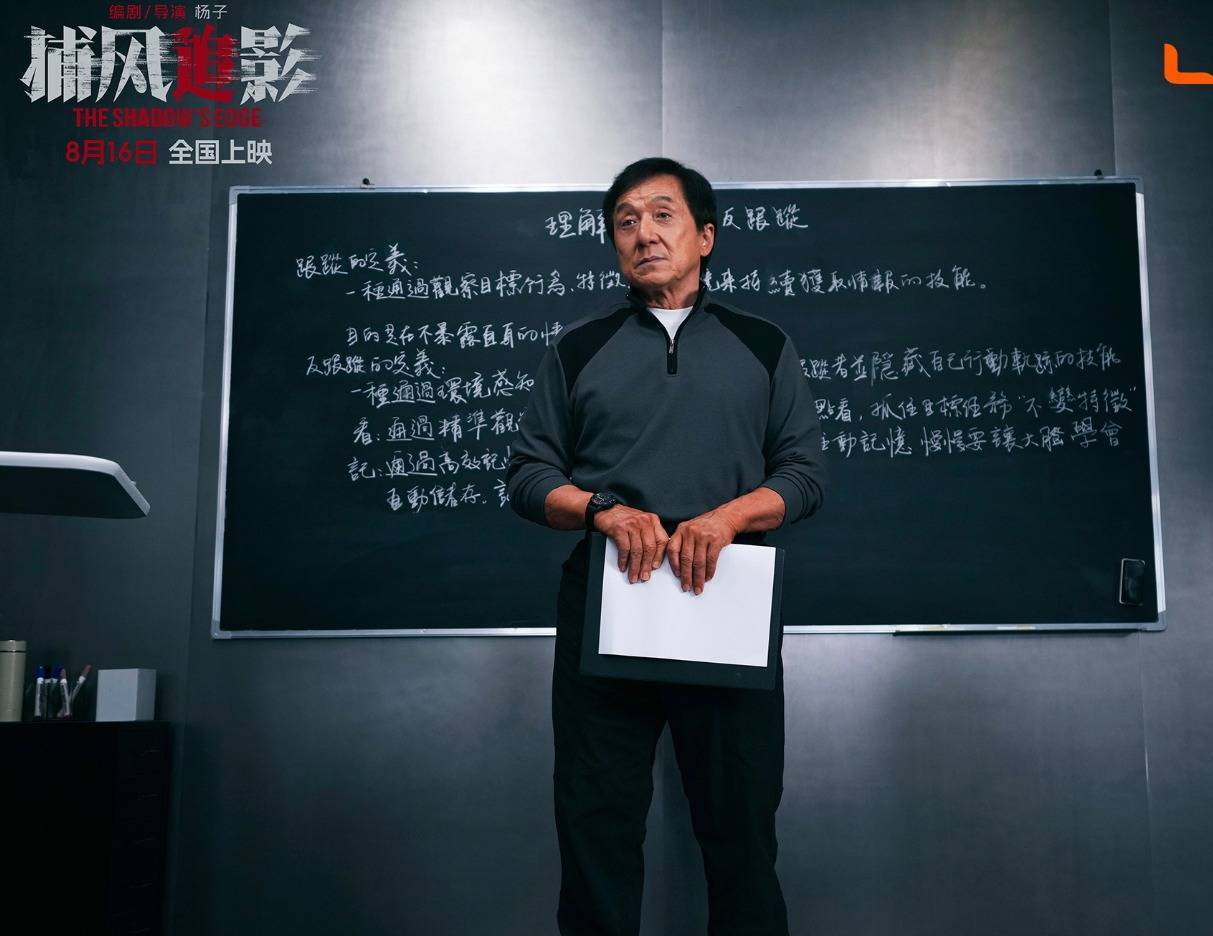 编剧/导演 杨子
捕风追影
THE SHADOW'S EDGE
8月16日 全国上映
理解 反跟蹤
跟蹤的定義:
一種通過觀察目標行為、特徵 來持續獲取情報的技能。
目的是在不暴露自身的情
反跟蹤的定義:
一種通過環境感知 跟蹤者並隱藏自己行動軌跡的技能
看:通過精準觀 點看,抓住目標任務“不變特徵”
記:通過高效記 主動記憶 慢慢要讓大腦學會
自動儲存.